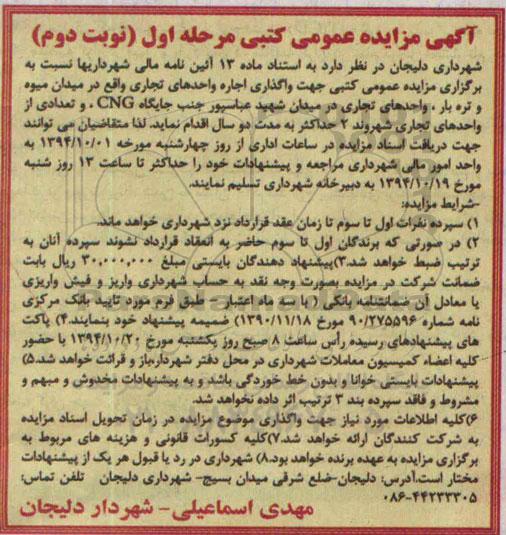 آگهی مزایده عمومی کتبی مرحله اول (نوبت دوم)
شهرداری دلیجان در نظر دارد به استناد ماده ۱۳ آئین نامه مالی شهرداریها نسبت به
برگزاری مزایده عمومی کتبی جهت واگذاری اجاره واحدهای تجاری واقع در میدان میوه
و تره بار ، واحدهای تجاری در میدان شهید عباسپور جنب جایگاه CNG ، و تعدادی از
واحدهای تجاری شهروند ۲ حداکثر به مدت دو سال اقدام نماید. لذا متقاضیان می توانند
جهت دریافت اسناد مزایده در ساعات اداری از روز چهارشنبه مورخه ۱۳۹۴/۱۰/۰۱ به
واحد امور مالی شهرداری مراجعه و پیشنهادات خود را حداکثر تا ساعت ۱۳ روز شنبه
مورخ ۱۳۹۴/۱۰/۱۹ به دبیرخانه شهرداری تسلیم نمایند.
-شرایط مزایده:
۱) سپرده نفرات اول تا سوم تا زمان عقد قرارداد نزد شهرداری خواهد ماند.
۲) در صورتی که برندگان اول تا سوم حاضر به انعقاد قرارداد نشوند سپرده آنان به
ترتیب ضبط خواهد شد.۳)پیشنهاد دهندگان بایستی مبلغ ۳۰,۰۰۰,۰۰۰ ریال بابت
ضمانت شرکت در مزایده بصورت وجه نقد به حساب شهرداری واریز و فیش واریزی
یا معادل آن ضمانتنامه بانکی ( با سه ماه اعتبار - طبق فرم مورد تایید بانک مرکزی
نامه شماره ۹۰/۲۷۵۵۹۶ مورخ ۱۳۹۰/۱۱/۱۸) ضمیمه پیشنهاد خود بنمایند.۴) پاکت
های پیشنهادهای رسیده رأس ساعت ۸ صبح روز یکشنبه مورخ ۱۳۹۴/۱۰/۲۰ با حضور
کلیه اعضاء کمیسیون معاملات شهرداری در محل دفتر شهردار،باز و قرائت خواهد شد.۵)
پیشنهادات بایستی خوانا و بدون خط خوردگی باشد و به پیشنهادات مخدوش و مبهم و
مشروط و فاقد سپرده بند ۳ ترتیب اثر داده نخواهد شد.
۶)کلیه اطلاعات مورد نیاز جهت واگذاری موضوع مزایده در زمان تحویل اسناد مزایده
به شرکت کنندگان ارائه خواهد شد.۷)کلیه کسورات قانونی و هزینه های مربوط به
برگزاری مزایده به عهده برنده خواهد بود.۸) شهرداری در رد یا قبول هر یک از پیشنهادات
مختار است.آدرس: دلیجان-ضلع شرقی میدان بسیج- شهرداری دلیجان تلفن تماس:
۰۸۶-۴۴۲۳۳۳۰۵
مهدی اسماعیلی- شهردار دلیجان